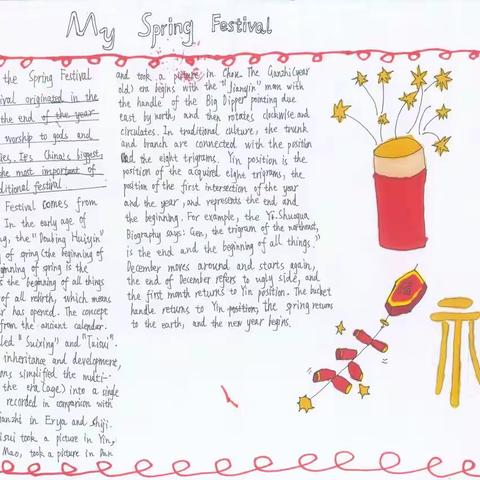 My Spring Festival
the Spring Festival
ival originated in the
the end of the year
worship to gods and
es. It's China's biggest,
he most important of
ditional festival.
Festival comes from
In the early age of
ng, the "Doubing Huiyin"
of spring (the beginning of
ginning of spring is the
s the beginning of all things
of all rebirth, which means
er has opened. The concept
from the ancient calendar.
lled "Suixing" and "Taisui".
inheritance and development,
ons simplified the multi-
the era (age) into a single
recorded in comparison with
anzhi in Erya and Shiji.
isui took a picture in Yin,
Mao, took a picture in Dan
and took a picture in Chou. The Ganzhi (year
old) era begins with the "Jianyin" moon with
the handle of the Big Dipper pointing due
east by north, and then rotates clockwise and
circulates. In traditional culture, the trunk
and branch are connected with the position
and the eight trigrams. Yin position is the
position of the acquired eight trigrams, the
position of the first intersection of the year
and the year, and represents the end and
the beginning. For example, the Yi Shuogua
Biography says: Gen, the trigram of the northeast,
is the end and the beginning of all things."
December moves around and starts again,
the end of December refers to ugly side, and
the first month returns to Yin position. The bucket
handle returns to Yin position, the spring returns
to the earth, and the new year begins.